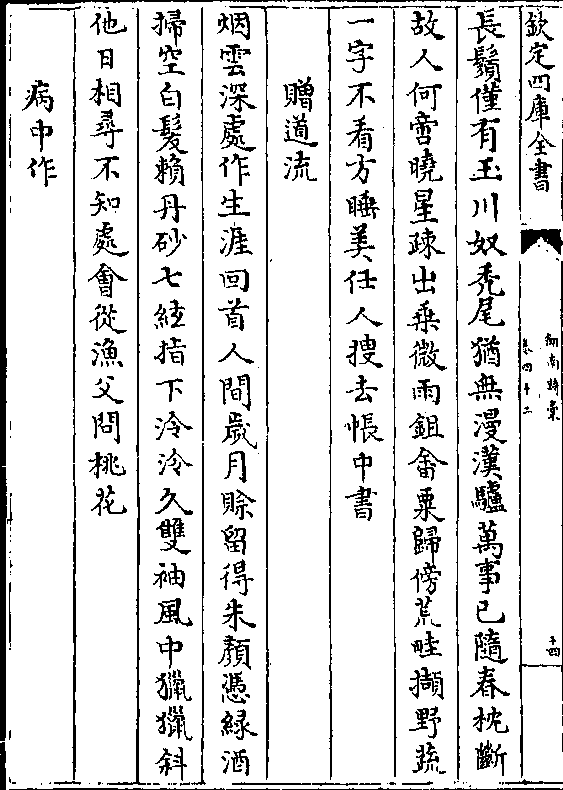 欽定四庫全書
劍南詩槀
卷四十二
十四
長鬚僅有玉川奴秃尾猶無漫漢驢萬事已隨春枕斷
故人何啻曉星疎出乗微雨鉏畬粟歸傍荒畦擷野蔬
一字不看方睡美任人搜去帳中書
贈道流
烟雲深處作生涯回首人間歲月賒留得朱顔憑緑酒
掃空白髪賴丹砂七絃指下泠泠久雙袖風中獵獵斜
他日相尋不知處會從漁父問桃花
病中作